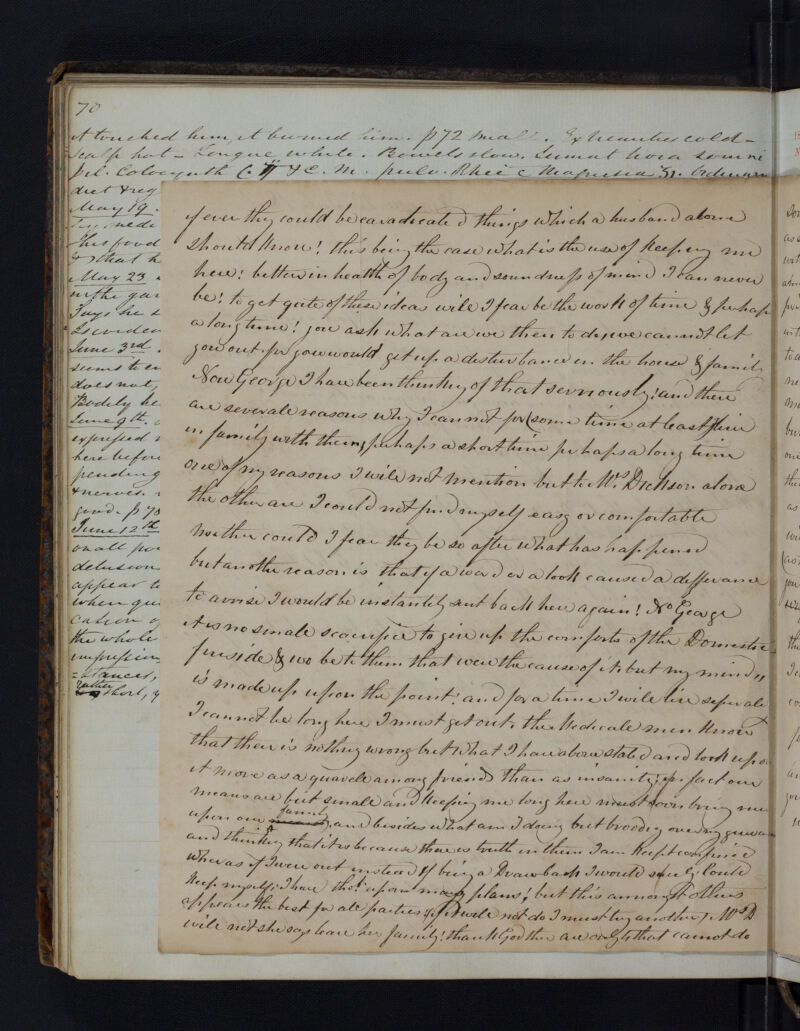 70
it touched him, it burned him. p72 Small. Extremities cold –
scalp hot – Tongue white. Bowels slow. Sumat hora somni
pil. Colocynth C. pulv. Rhei c Magnesia Ordinary
diet & reg
May 19.
his food
& that h
May 23
in the gar
Says he s
Is eviden
June 3rd.
seems to en
does not
Bodily he
June 9th.
expressed
here before
pending
& nerves.
good. p 70
June 12th
on all poi
delusion
appear to
when que
cation o
the whole
impression
stances,
rather
short, y
if ever they could be earadicated things which a husband alone
should know! this being the case what is the use of keeping me
here! better in health of body and soundness of mind I can never
be! to get quite of these ideas wile I fear be the work of time & perhaps
a long time! you ask what are we then to do, we cannot let
you out for you would get up a disturbance in the house & family
Now George I have been thinking of that serriously! and there
are severale reasons why I cannot for (some time at least) live
in family with them, perhaps a short time perhaps a long time
one of my reasons I wile not mention but to Mrs Dickson alone
the other are I could not find myself easy or comfortable
neither could I fear they be so after what has happened
but another reason is that if a word or a look caused a differance
to arrise I would be instantly sent back here again! No George
it is no smale sacrifice to give up the comforts of the Domestic
fireside & wo be to them that were the cause of it but my mind
is made up upon the point! and for a time I wile live seperate
I cannot be long here I must get out. the Medicale men know
that thair is nothing wrong but what I have above stated and look upon
it more as a quarele among friends than as insanity; in fact our
means are but smale and keeping me long here must soon bring me
upon our family, and besides what am I doing but brooding over my
and thinking that it is because there is truth in them I am kept confined
wheras if I were out instead of being a Drawback I would surely could
keep myself; I have thot upon many plans! but this amongst others
appears the best for ale parties if it wile not do I must try another, Mrs D
wile not she says leave her family! thank God ther are only that cannot do